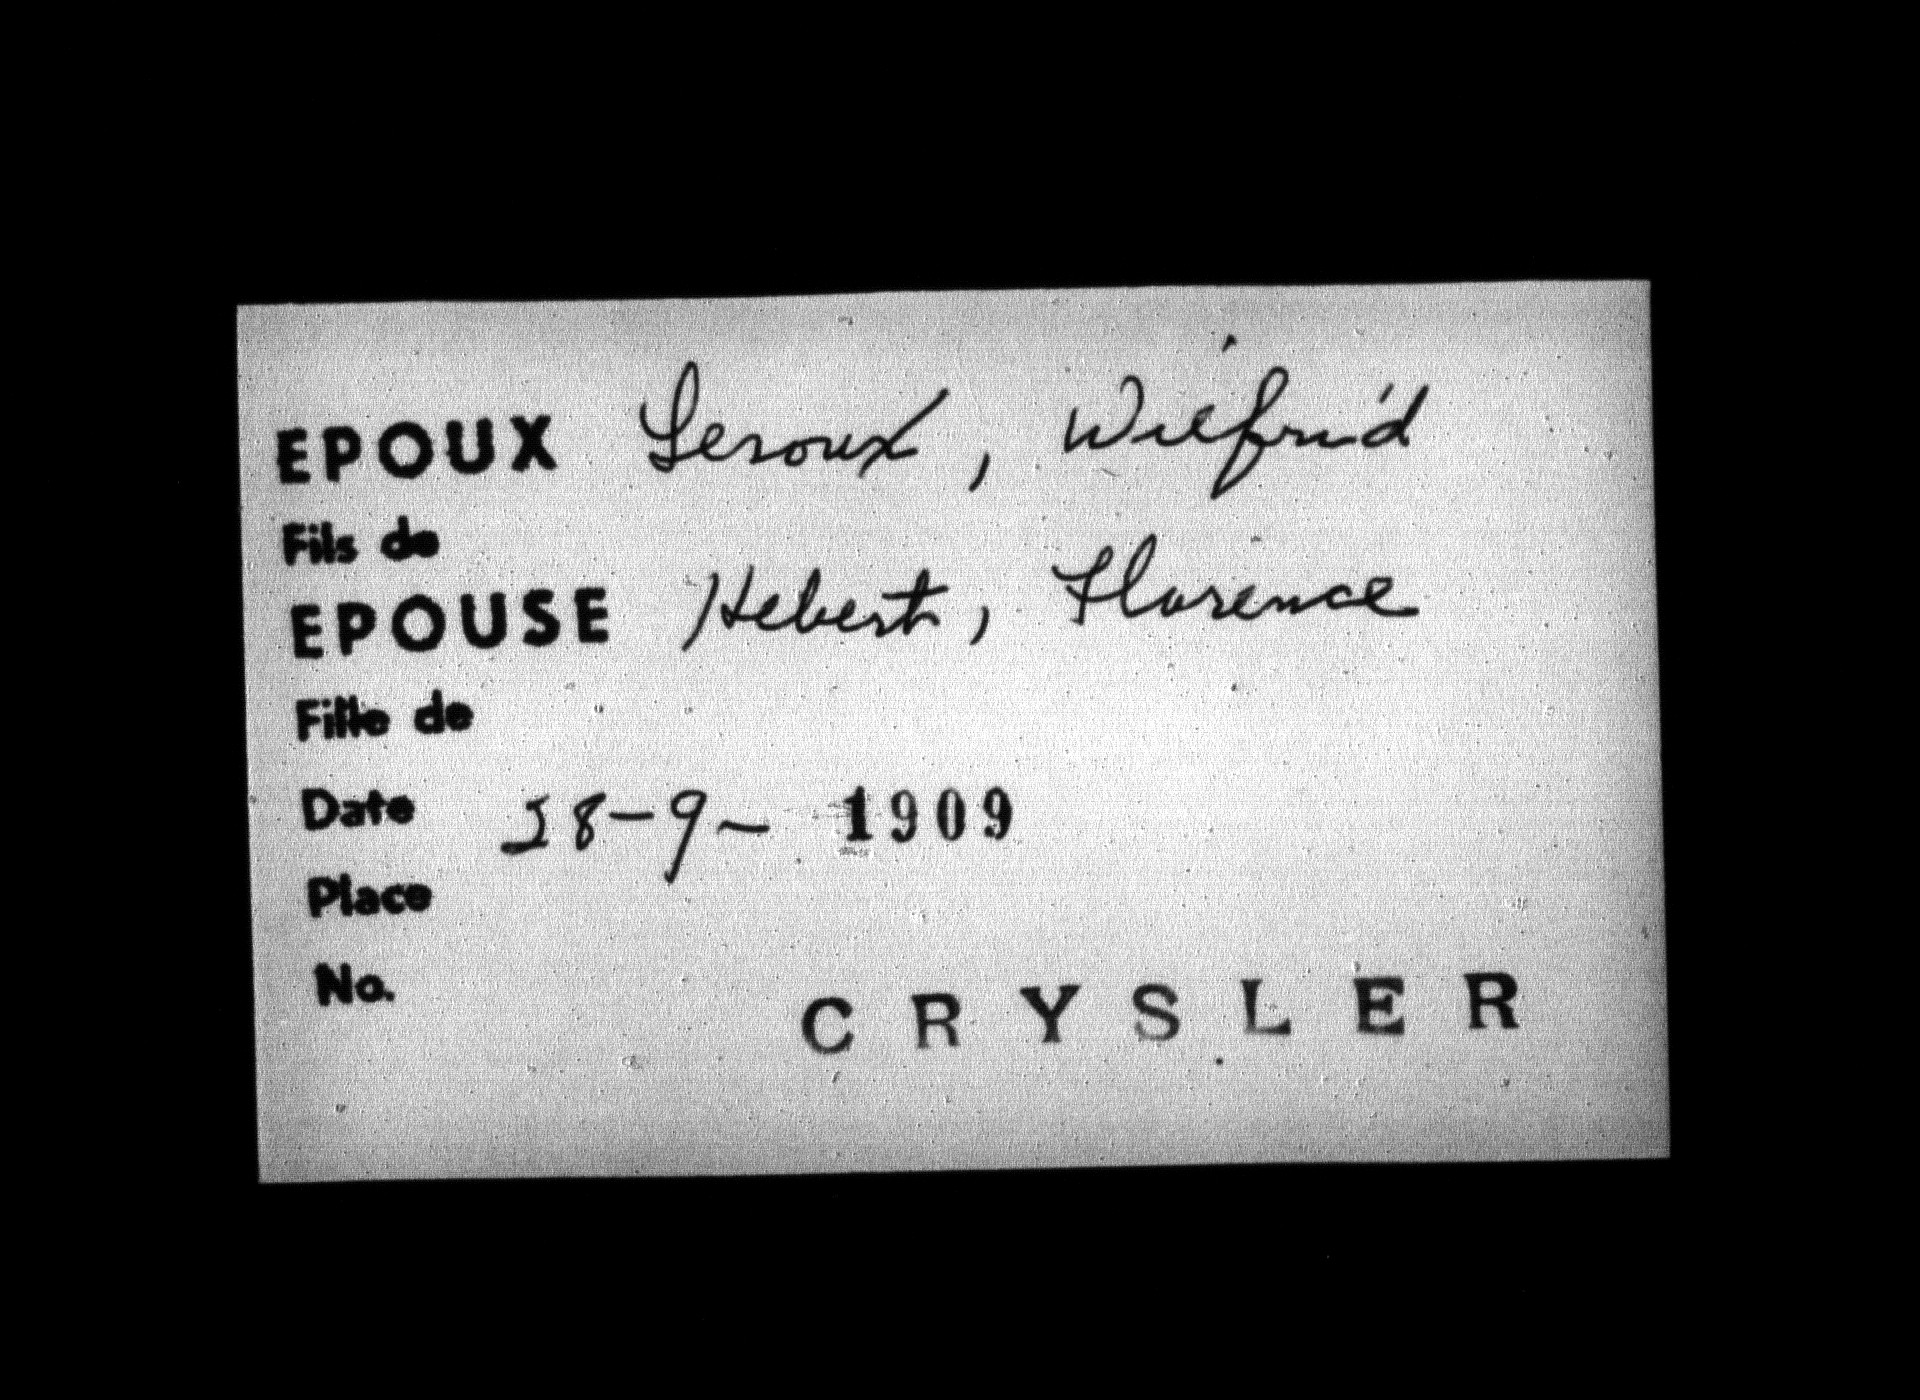 EPOUX Leroux, Wilfrid
Fils de
EPOUSE Hebert, Florence
Fille de
Date 28-9- 1909
Place
No.
CRYSLER